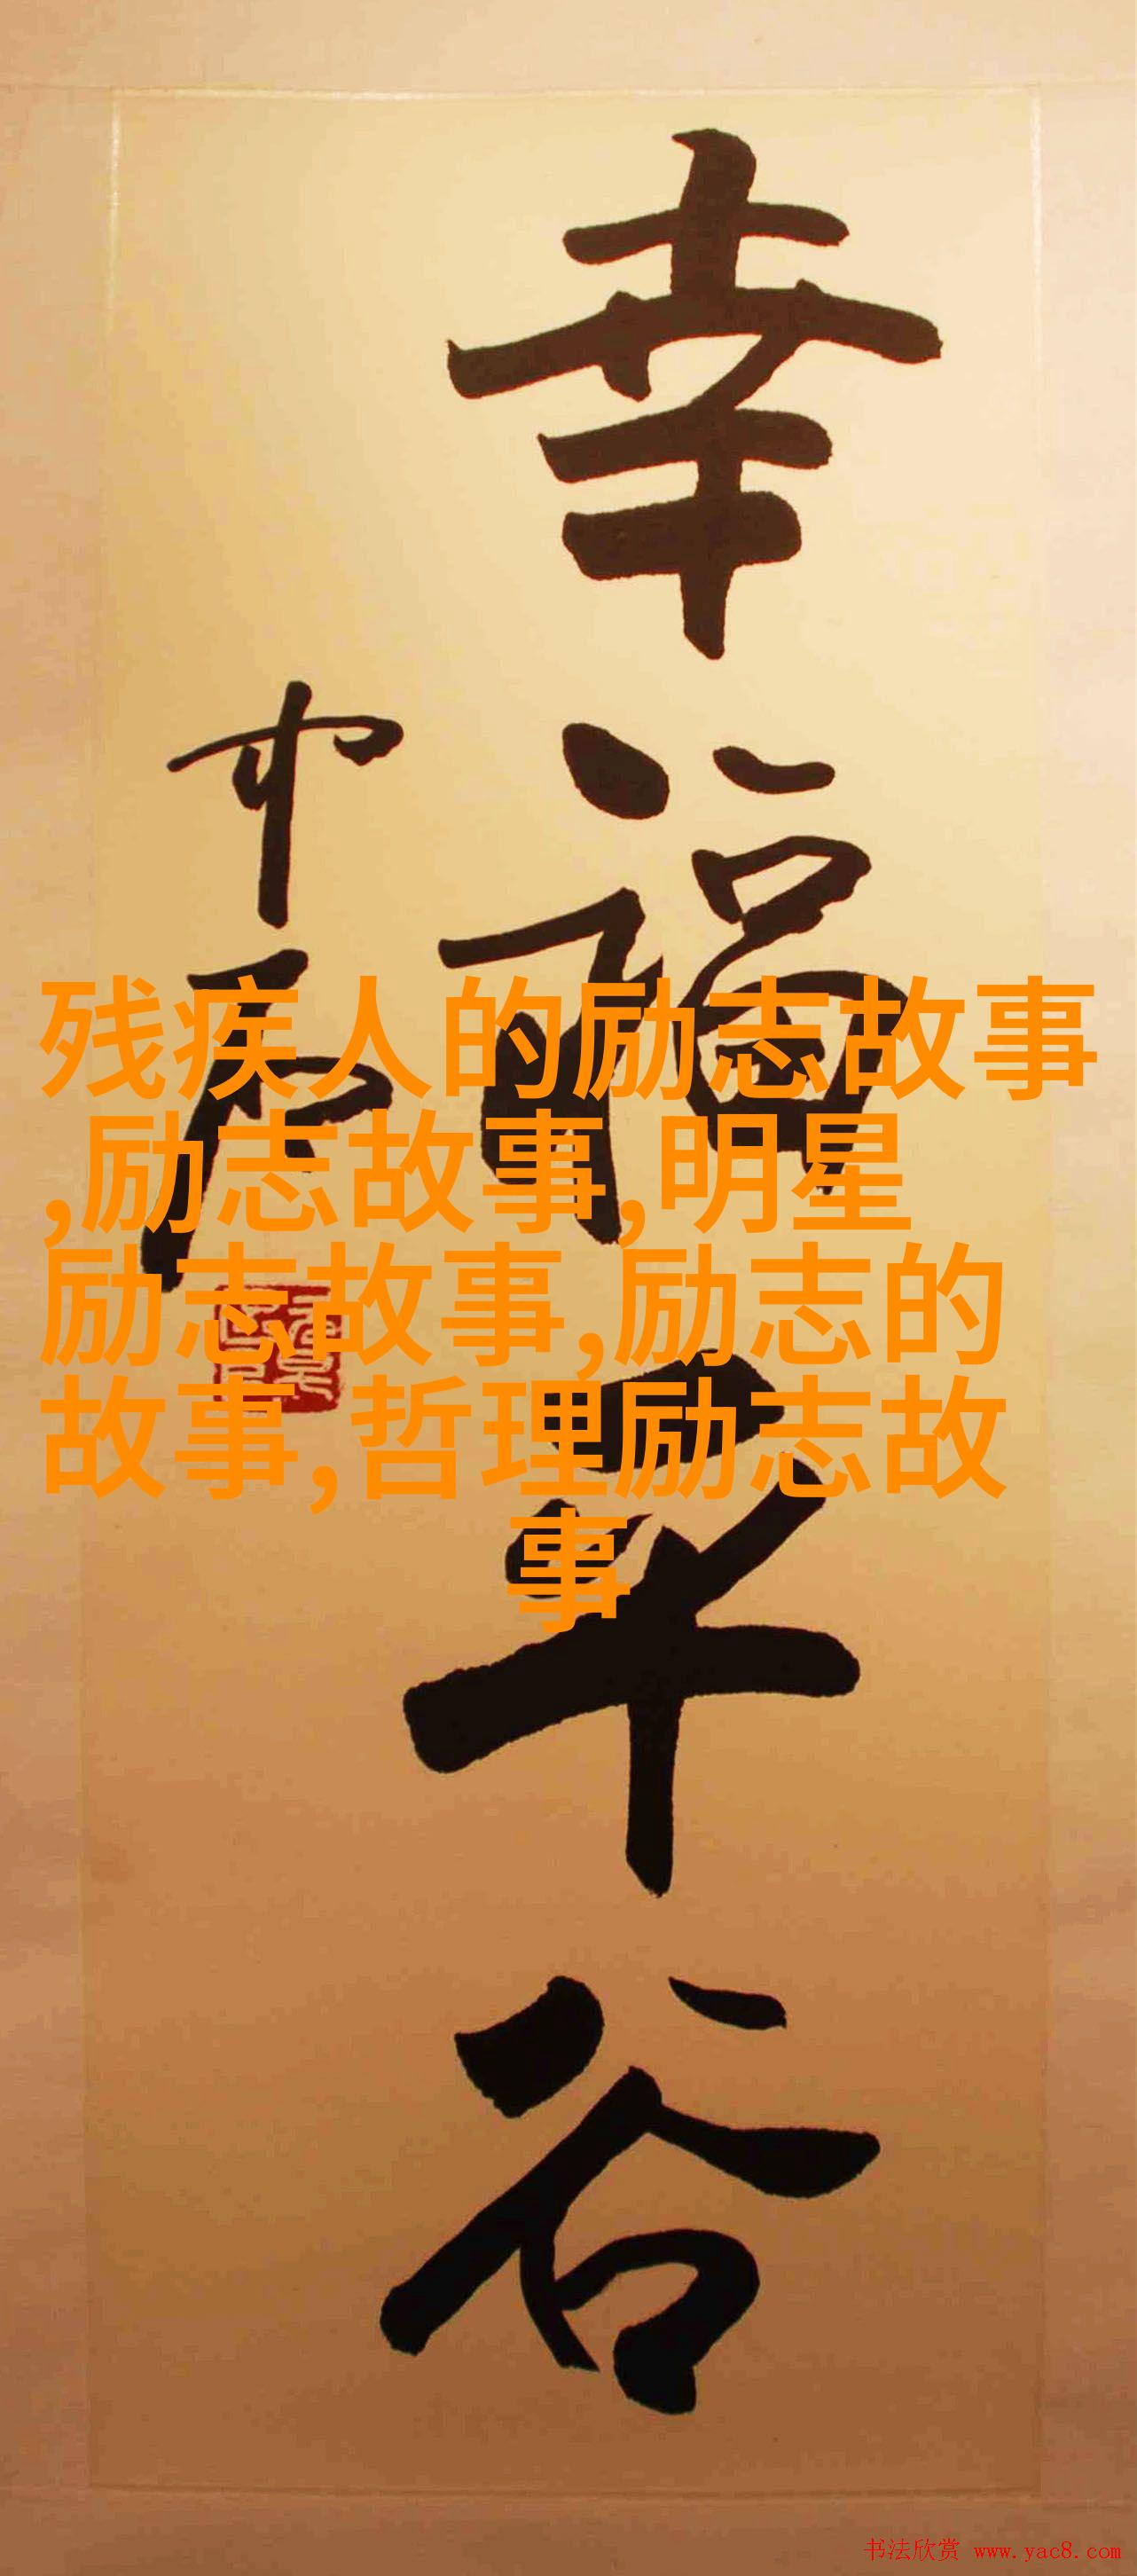 幸福平谷
残疾人的励志故事
,励志故事,明星
励志故事,励志的
故事,哲理励志故
事
书法欣赏 www.yac8.com